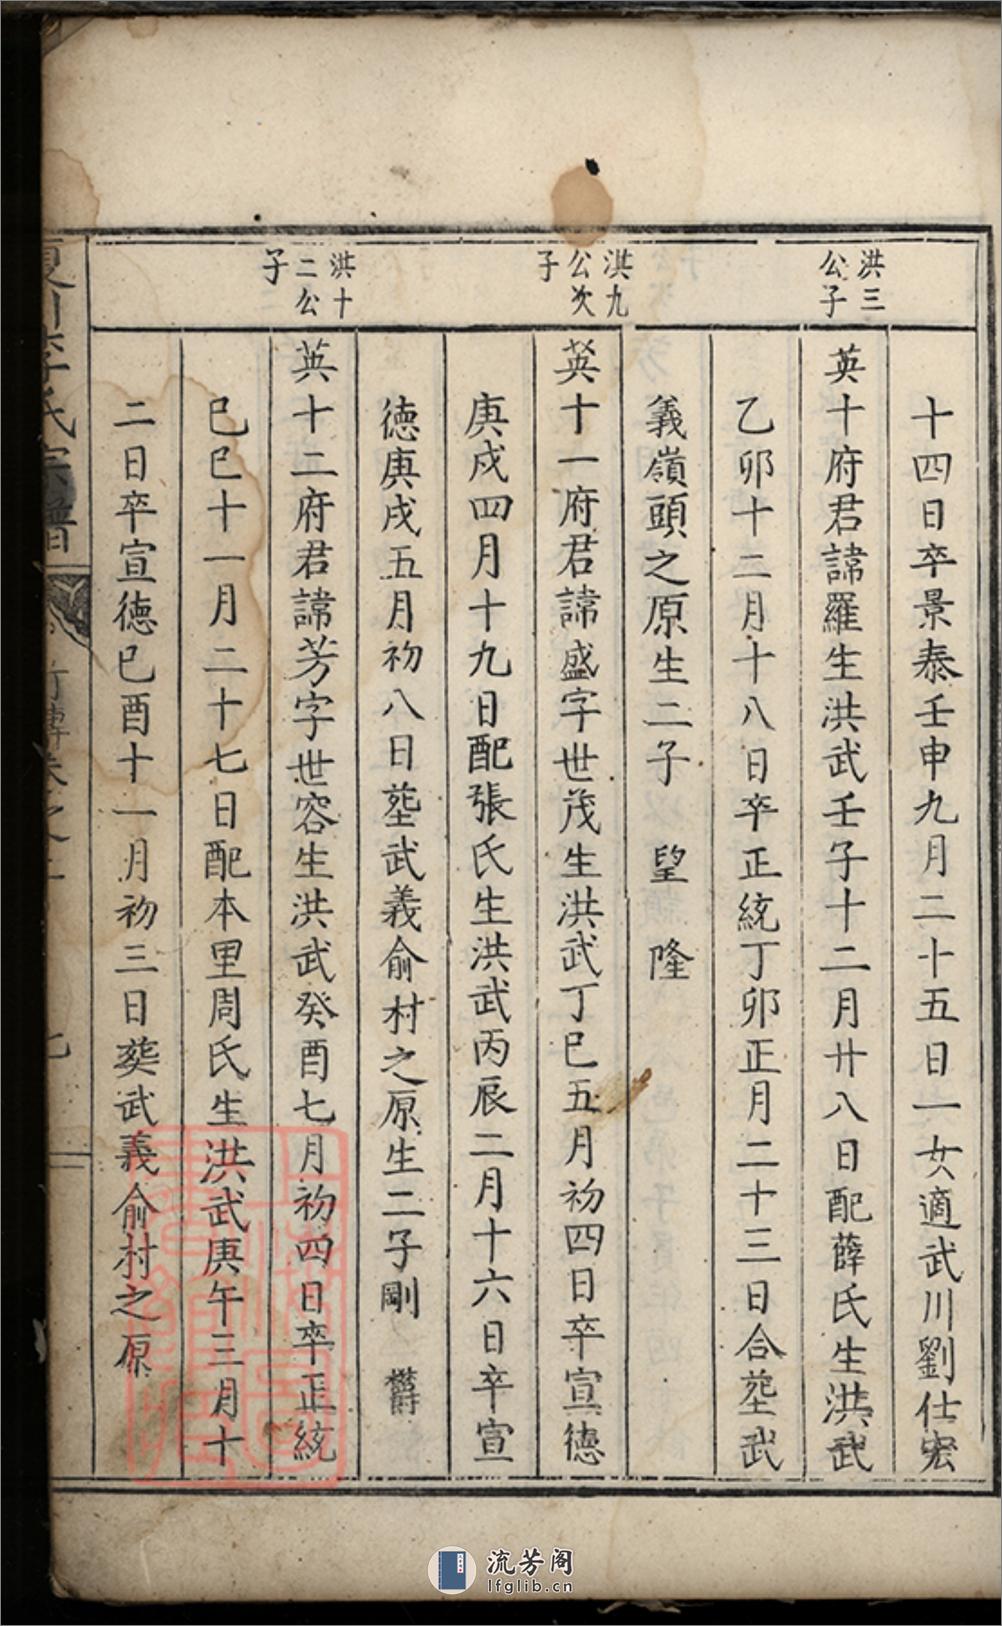 洪三公子
洪九公次子
洪十二公子
十四日卒景泰壬申九月二十五日一女適武川劉仕宏
英十府君諱羅生洪武壬子十二月廿八日配薛氏生洪武
乙卯十二月十八日卒正統丁卯正月二十三日合塟武
義嶺頭之原生二子 望 隆
英十一府君諱盛字世茂生洪武丁巳五月初四日卒宣德
庚戍四月十九日配張氏生洪武丙辰二月十六日卒宣
德庚戍五月初八日塟武義俞村之原生二子剛 欝
英十二府君諱芳字世容生洪武癸酉七月初四日卒正統
己巳十一月二十七日配本里周氏生洪武庚午三月十
二日卒宣德己酉十一月初三日葬武義俞村之原
李氏宗譜
行傳卷之
流芳阁
lfglib.cn